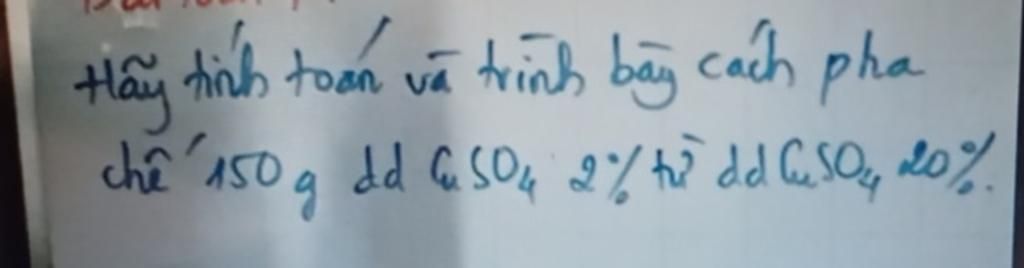 Hãy tính toán và trình bày cách pha
chế 150g dd CuSO4 2% từ dd CuSO4 20%.